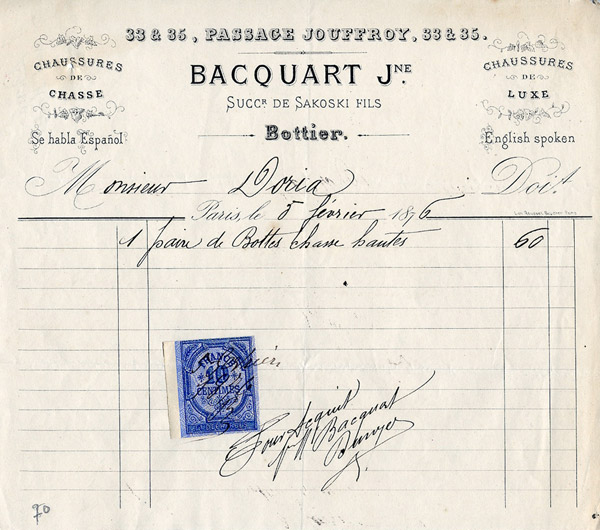 33 & 35, PASSAGE JOUFFROY, 33 & 35.
CHAUSSURES
DE
CHASSE
BACQUART JNE.
CHAUSSURES
DE
LUXE
SUCCR. DE SAKOSKI FILS
Se habla Español
Bottier.
English spoken
Monsieur Doria Doit
Paris, le 5 février 1876
1 paire de Bottes chasse hautes 60
FRANÇAISE
10
CENTIMES
Pour acquit
Bacquart
90